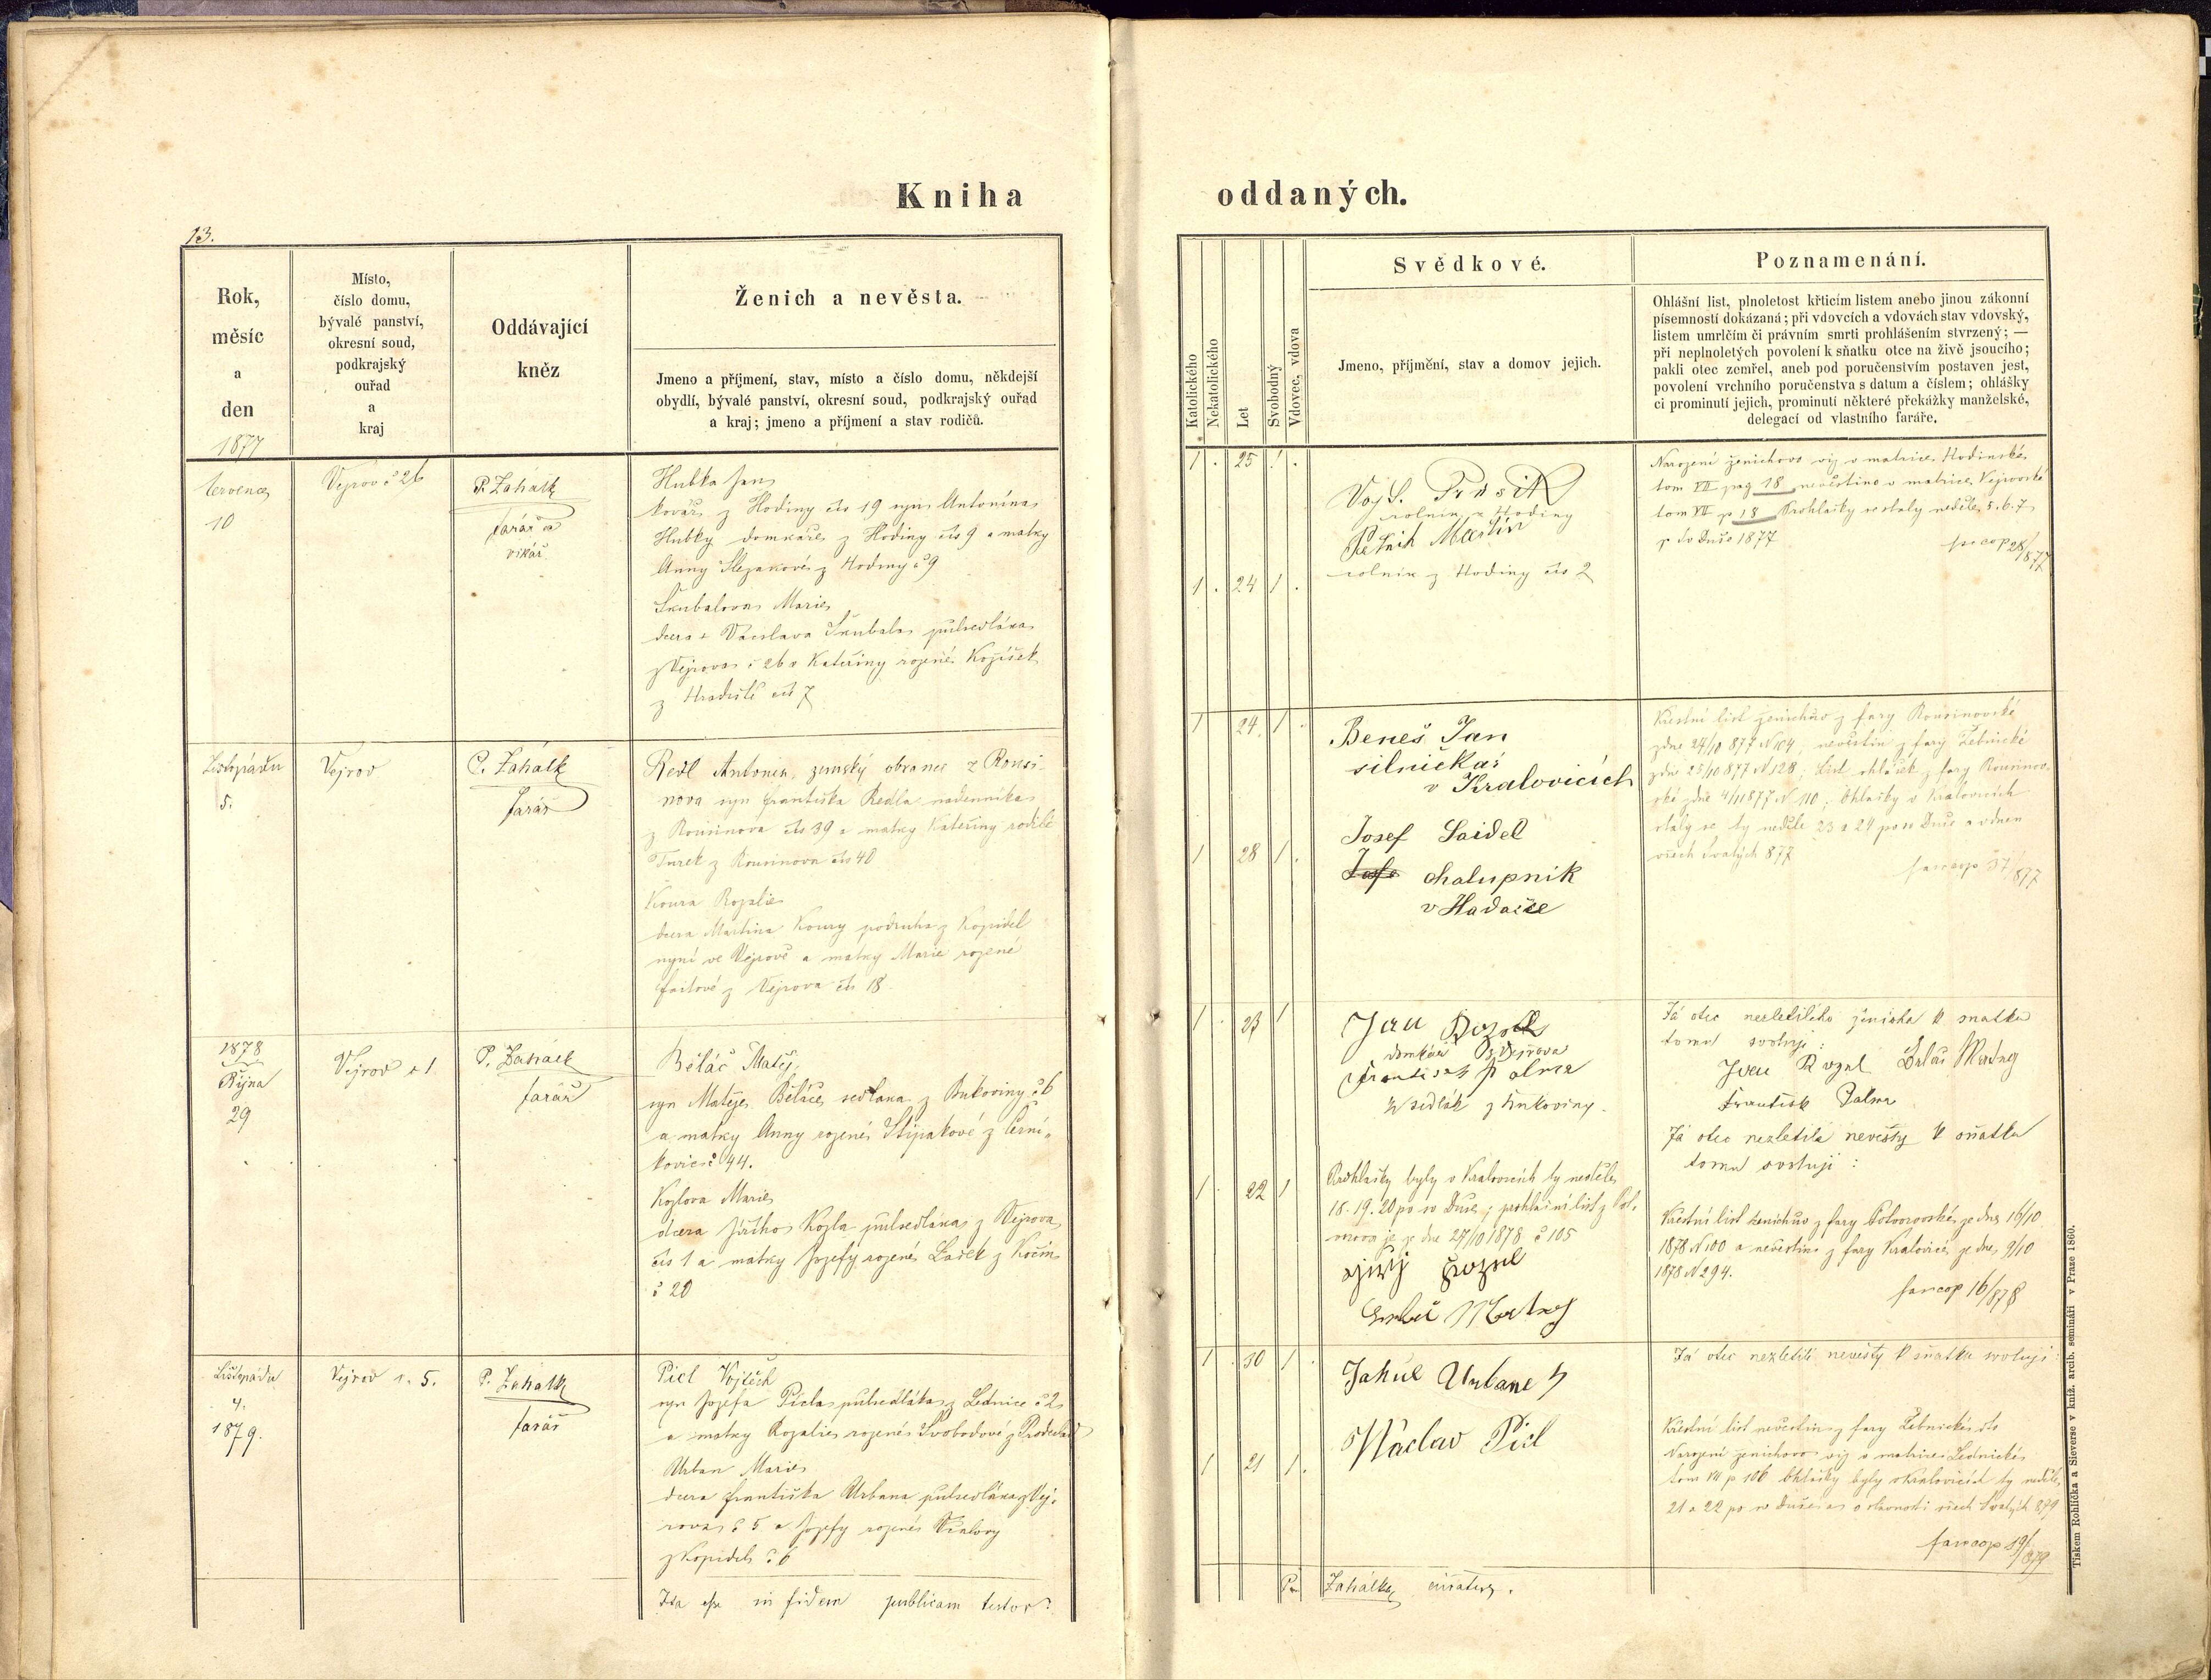 Kniha
oddaných.
13.
Rok,
měsíc
a
den
1877
Místo,
číslo domu,
bývalé panství,
okresní soud,
podkrajský
ouřad
a
kraj
Oddávající
kněz
Ženich a nevěsta.
Jmeno a příjmení, stav, místo a číslo domu, někdejší
obydlí, bývalé panství, okresní soud, podkrajský ouřad
a kraj; jmeno a příjmení a stav rodičů.
Katolického
Nekatolického
Let
Svobodný
Vdovec, vdova
Svědkové.
Jmeno, příjmění, stav a domov jejich.
Poznamenání.
Ohlášní list, plnoletost křticím listem anebo jinou zákonní
písemností dokázaná; při vdovcích a vdovách stav vdovský,
listem umrlčím či právním smrti prohlášením stvrzený; —
při neplnoletých povolení k sňatku otce na živě jsoucího;
pakli otec zemřel, aneb pod poručenstvím postaven jest,
povolení vrchního poručenstva s datum a číslem; ohlášky
ci prominutí jejich, prominutí některé překážky manželské,
delegací od vlastního faráře.
Července
10
Vejrov č 26
P. Zahálka
farář a
vikář
Hubka Jan
kovář z Hodiny čís 19 syn Antonína
Hubky domkáře z Hodiny čís 9 a matky
Anny z Hodiny č 9
Škubalova Marie
dcera + Václava Škubala půlsedláka
z Vejrova č 26 a Kateřiny rozené Kozíšek
z Hradiště čís 7
1 25 1
1 24 1
Vojt.
rolník z Hodiny
Martin
rolník z Hodiny čís 2
Narození ženichovo viz v matrice Hodinské
tom VII pag 18 nevěstino v matrice Vejrovské
tom VII p 18 Prohlášky se staly neděle 5. 6. 7
p sv Duše 1877
fascop 28/877
Listopadu
5.
Vejrov
P. Zahálka
farář
Redl Antonín, zemský obranec z Rousi-
nova syn Františka Redla nadenníka
z Rousinova čís 39 a matky Kateřiny rodilé
Turek z Rousinova čís 40
Koura Rozalie
dcera Martina Koury podruha z Kopidel
nyní ve Vejrově a matky Marie rozené
Faitové z Vejrova čís 18.
1 24 1
1 28 1
Beneš Jan
silničkář
v Kralovicích
Josef Saidel
chalupnik
v Hadačce
Křestní list ženichův z fary Rousinovské
z dne 24/10 877 N 104, nevěstin z fary Žebnické
z dne 25/10 877 N 128, List ohlášek z fary Rousinov-
ské z dne 4/11 877 N 110; Ohlášky v Kralovicích
staly se ty neděle 23 a 24 po sv Duše a v den
všech Svatých 877
fascop 37/877
1878
Října
29
Vejrov č 1
P. Zahálka
farář
Běláč Matěj
syn Matěje Běláče sedláka z Bukoviny č 6
a matky Anny rozené Štipákové z Černí-
kovic č 44.
Kozlova Marie
dcera Jiřího Kozla půlsedláka z Vejrova
čís 1 a matky Josefy rozené Zadek z Kočín
č 20
1 23 1
1 22 1
Jan Rozol
domkář z Vejrova
František Palma
sedlák z Bukoviny.
Prohlášky byly v Kralovicích ty neděle
18. 19. 20 po sv Duše; prohlášní list z Pot-
vorova je ze dne 27/10 1878 č 105
Já otec nezletilého ženicha k snatku
tomu svoluji:
František Palma
Já otec nezletilé nevěsty k sňatku
tomu svoluji:
Křestní list ženichův z fary Potvorovské ze dne 16/10
1878 N 100 a nevěstin z fary Kralovice ze dne 9/10
1878 N 294.
fascop 16/878
Listopadu
4.
1879.
Vejrov č. 5.
P. Zahálka
farář
Picl Vojtěch
syn Josefa Picla půlsedláka z Lednice č 2
a matky Rozalie rozené Svobodové z
Urban Marie
dcera Františka Urbana půlsedláka z Vej-
rova č 5 a Josefy rozené
z Kopidel č 6
Ita esse in fidem publicam testor:
1 30 1
1 21 1
Jakub Urbanec
Václav Picl
Já otec nezletilé nevěsty k sňatku svoluji:
Křestní list nevěstin z fary Žebnické dto
Narození ženichovo viz v matrice Lednické
tom VII p 106 Ohlášky byly v Kralovicích ty neděle
21 a 22 po sv Duše a o slavnosti všech Svatých 879
fascop 19/879
P. Zahálka
Tiskem Rohlíčka a Sieverse v kníž. arcib. semináři v Praze 1860.